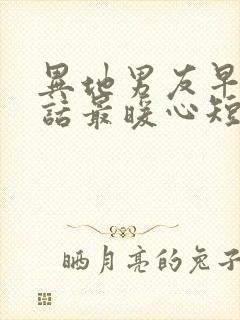 異地男友早
話最暖心短
晒月亮的兔子